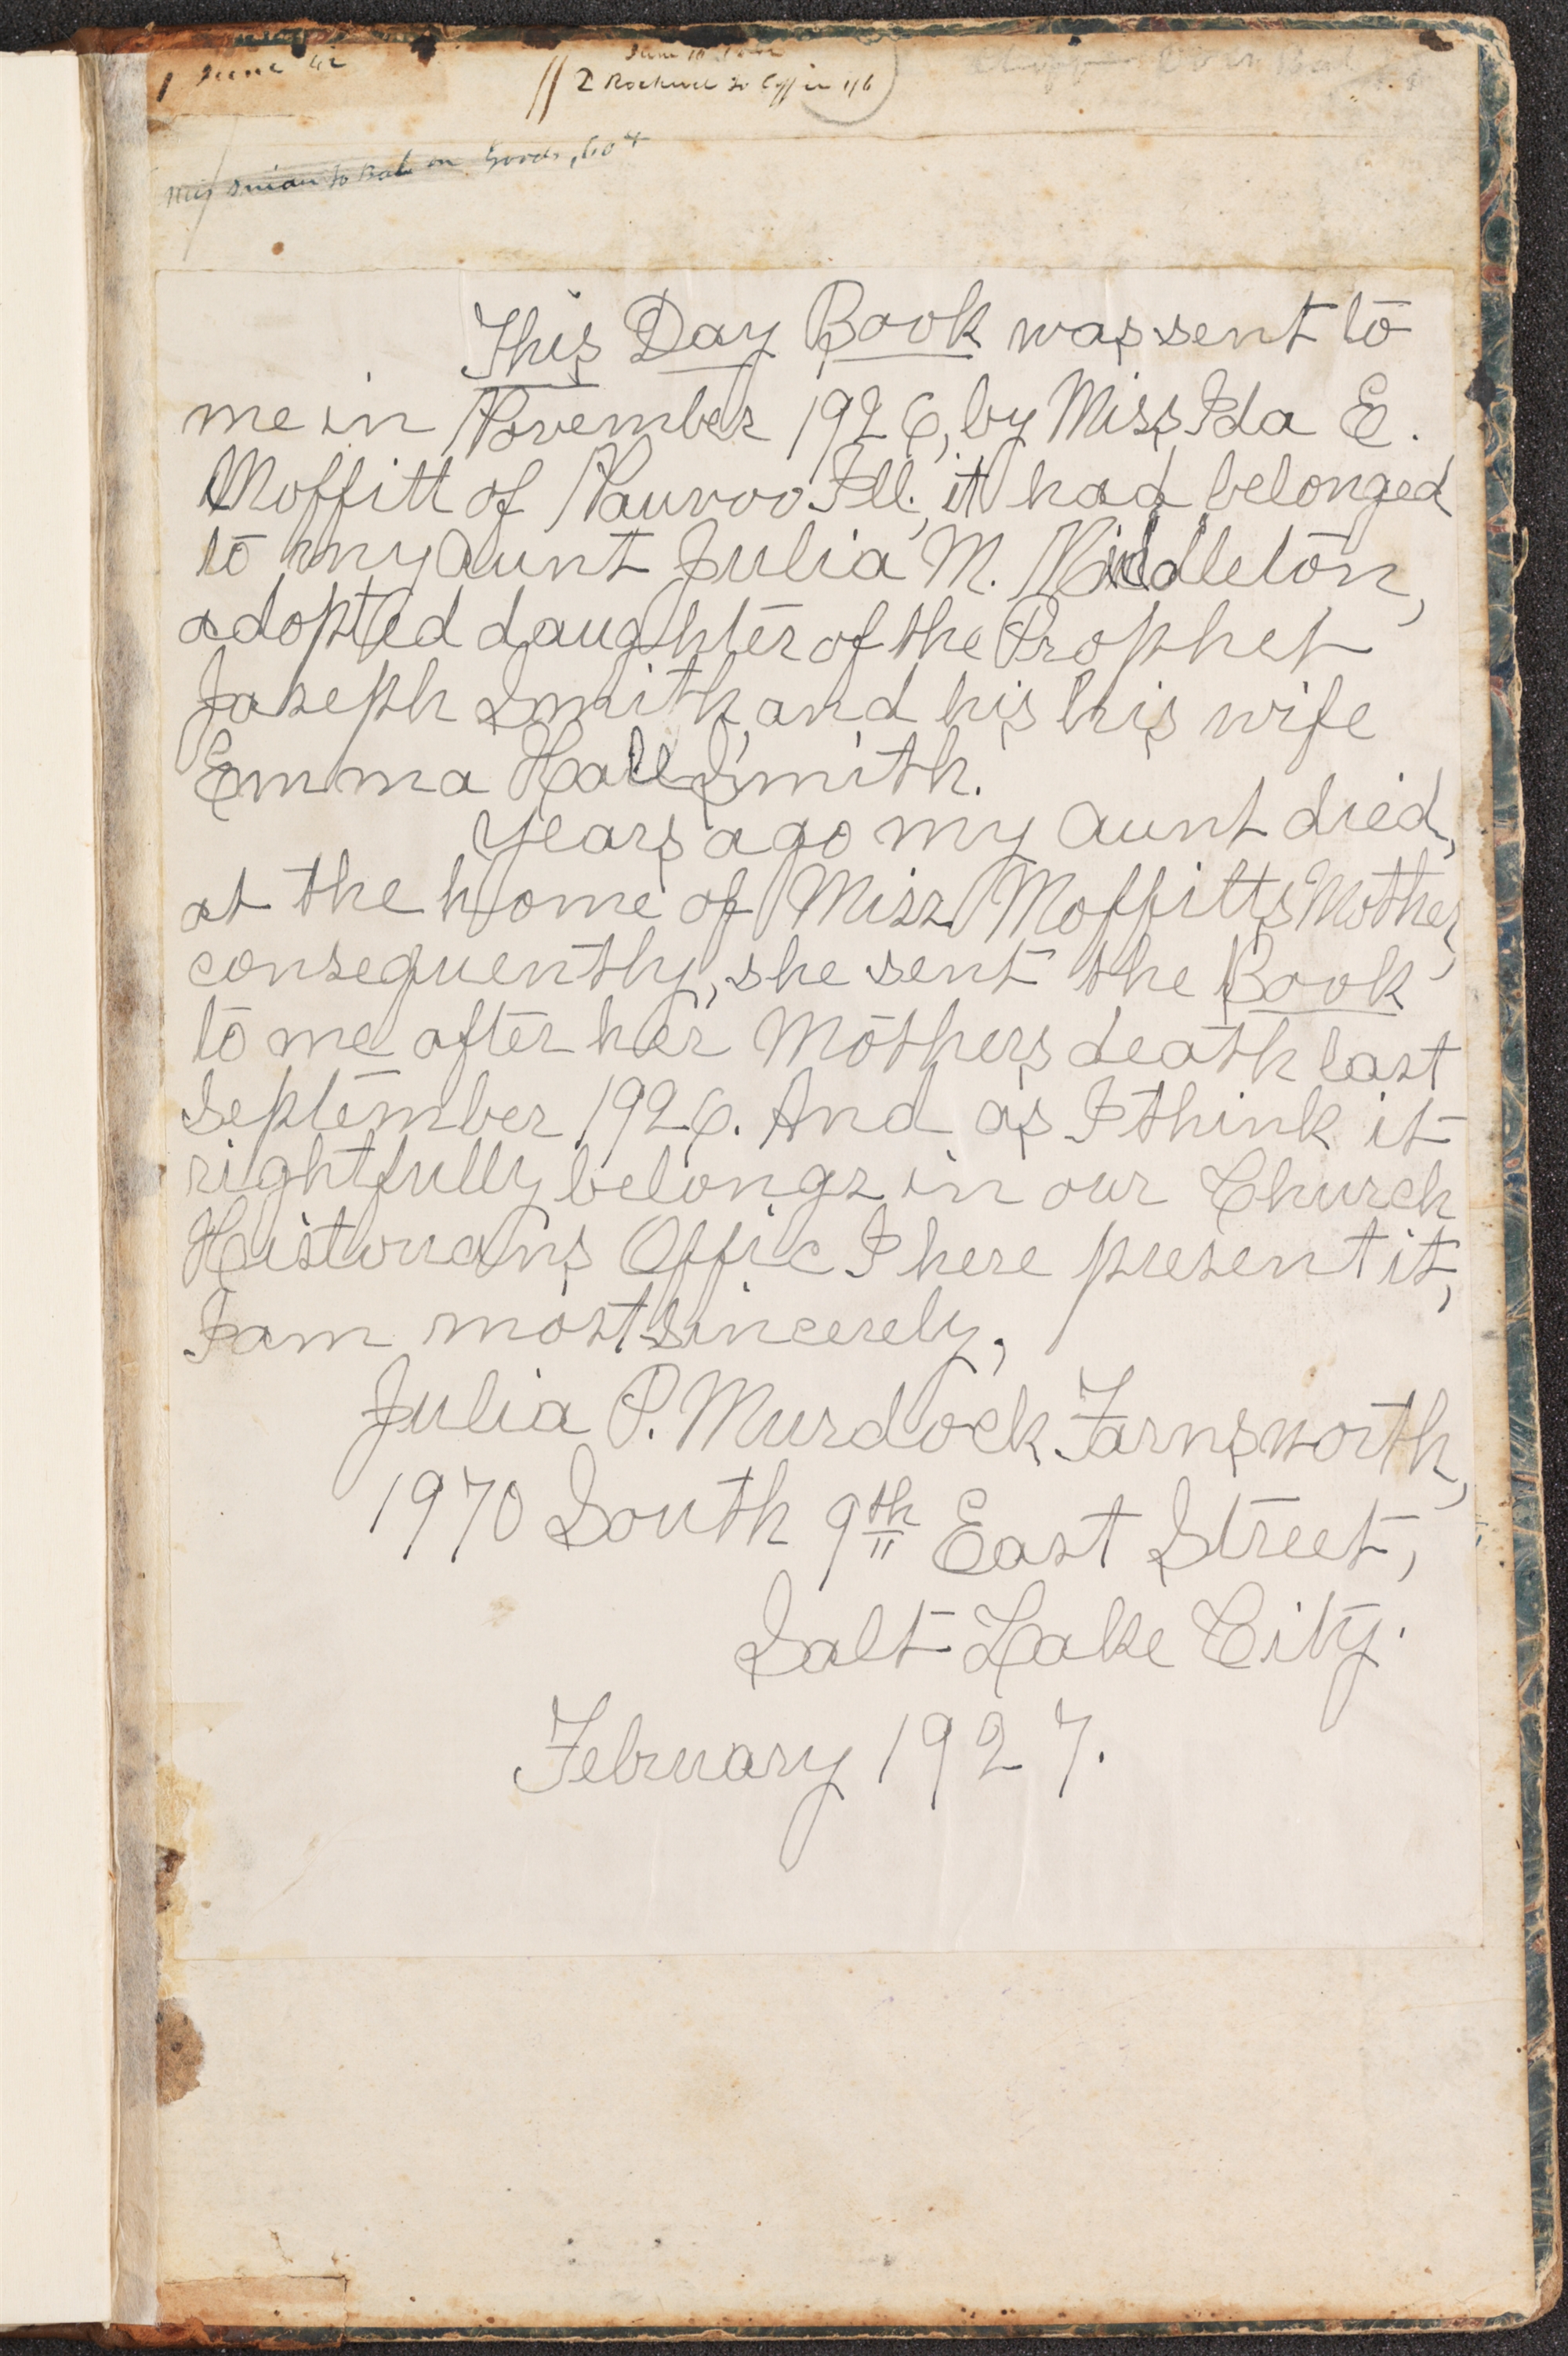 1 June 42
// 2 Rockwel to Coffin 1/6
to Bal on Goods, 60
This Day Book was sent to
me in November 1926, by Miss Ida E.
Moffitt of Nauvoo Ill. it had belonged
to my Aunt Julia M. Middleton,
adopted daughter of the Prophet
Joseph Smith, and his his wife
Emma Hale Smith.
Years ago my Aunt died,
at the home of Miss Moffitts Mother,
consequently, she sent the Book
to me after her Mothers death last
September 1926. And as I think it
rightfully belongs in our Church
Historians Offic I here present it,
I am most sincerely,
Julia P. Murdock Farnsworth,
1970 South 9th East Street,
Salt Lake City.
February 1927.